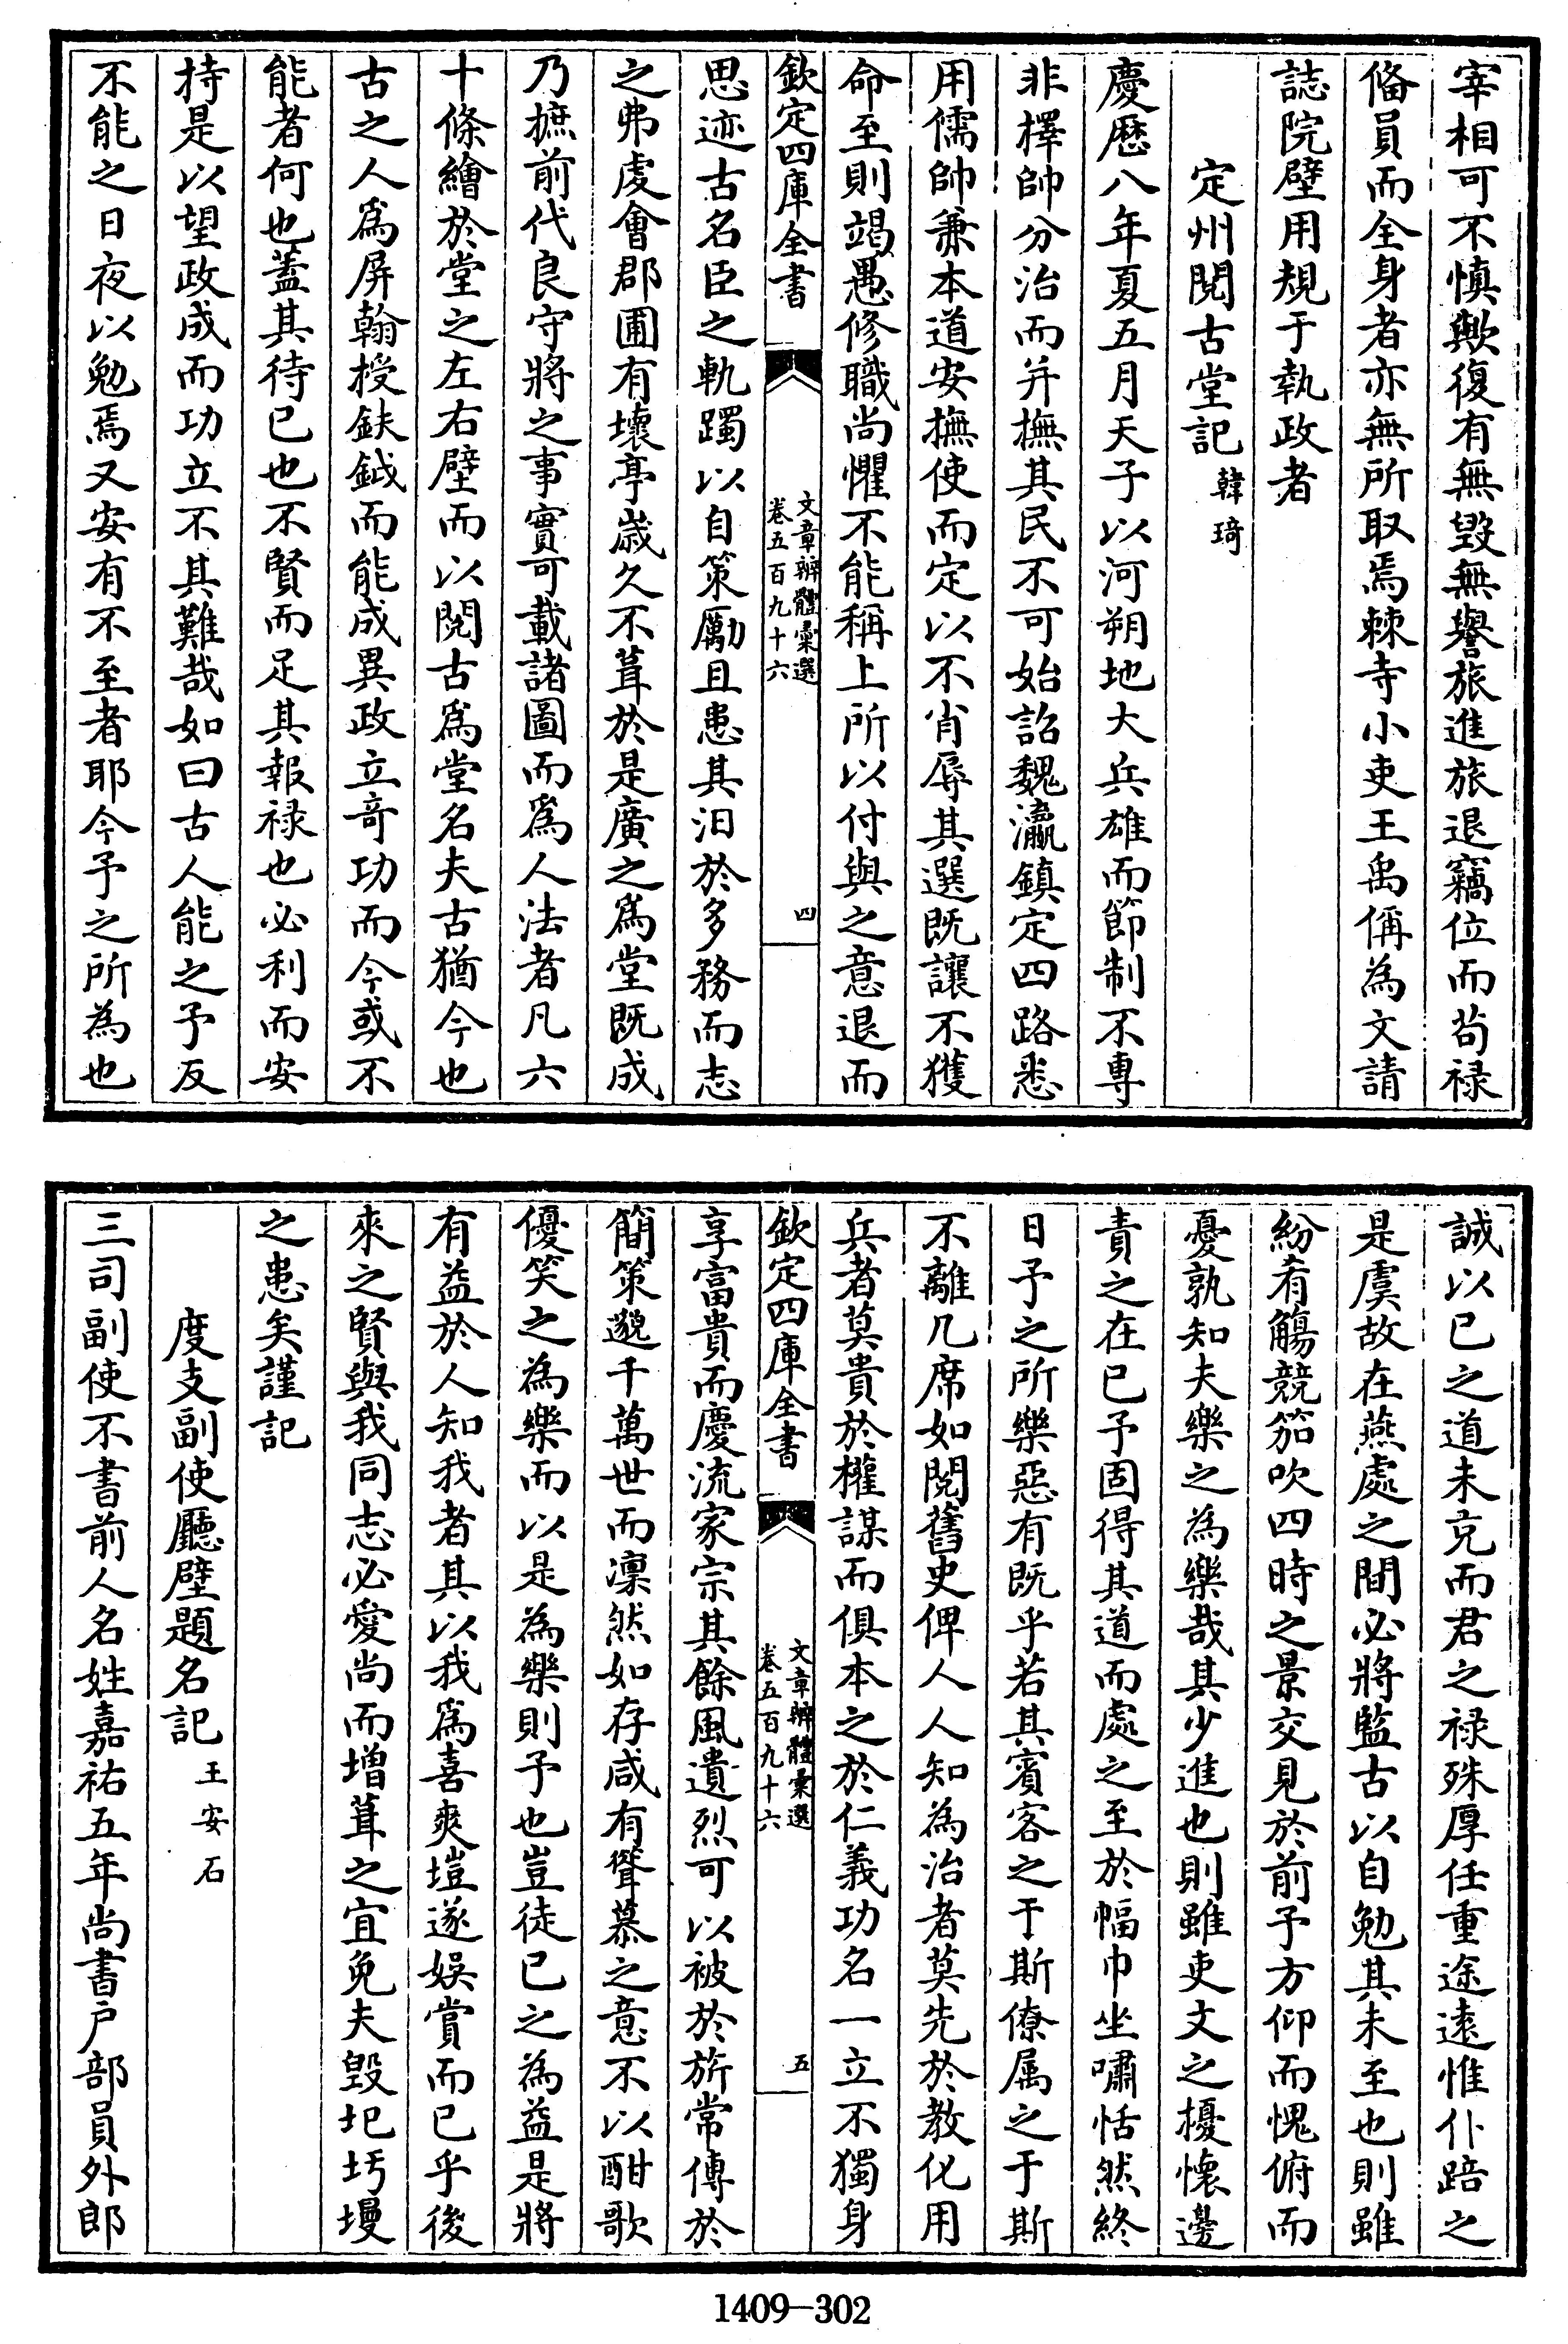 宰相可不慎歟復有無毀無譽旅進旅退竊位而茍禄
偹員而全身者亦無所取焉棘寺小吏王禹偁為文請
誌院壁用規于執政者
定州閱古堂記韓琦
慶歴八年夏五月天子以河朔地大兵雄而節制不專
非擇帥分治而并撫其民不可始詔魏瀛鎮定四路悉
用儒帥兼本道安撫使而定以不肖辱其選既讓不獲
命至則竭愚修職尚懼不能稱上所以付與之意退而
欽定四庫全書
文章辨體彙選
卷五百九十六
四
思迹古名臣之軌躅以自策厲且患其汨於多務而志
之弗虔會郡圃有壞亭歲久不葺於是廣之爲堂既成
乃摭前代良守將之事實可載諸圖而爲人法者凡六
十條繪於堂之左右壁而以閱古爲堂名夫古猶今也
古之人爲屏翰授鈇鉞而能成異政立竒功而今或不
能者何也蓋其待已也不賢而足其報禄也必利而安
持是以望政成而功立不其難哉如曰古人能之予反
不能之日夜以勉焉又安有不至者耶今予之所為也
誠以已之道未克而君之禄殊厚任重途逺惟仆踣之
是虞故在燕處之間必將監古以自勉其未至也則雖
紛肴觴競笳吹四時之景交見於前予方仰而愧俯而
憂孰知夫樂之為樂哉其少進也則雖吏文之擾懷邊
責之在已予固得其道而處之至於幅巾坐嘯恬然終
日予之所樂惡有既乎若其賓客之于斯僚屬之于斯
不離几席如閱舊史俾人人知為治者莫先於教化用
兵者莫貴於權謀而俱本之於仁義功名一立不獨身
欽定四庫全書
文章辨體彙選
卷五百九十六
五
享富貴而慶流家宗其餘風遺烈可以被於旂常傳於
簡策邈千萬世而凛然如存咸有聳慕之意不以酣歌
優笑之為樂而以是為樂則予也豈徒已之為益是將
有益於人知我者其以我爲喜爽塏遂娛賞而已乎後
來之賢與我同志必愛尚而增葺之宜免夫毀圯圬墁
之患矣謹記
度支副使廳壁題名記王安石
三司副使不書前人名姓嘉祐五年尚書户部員外郎
1409—302